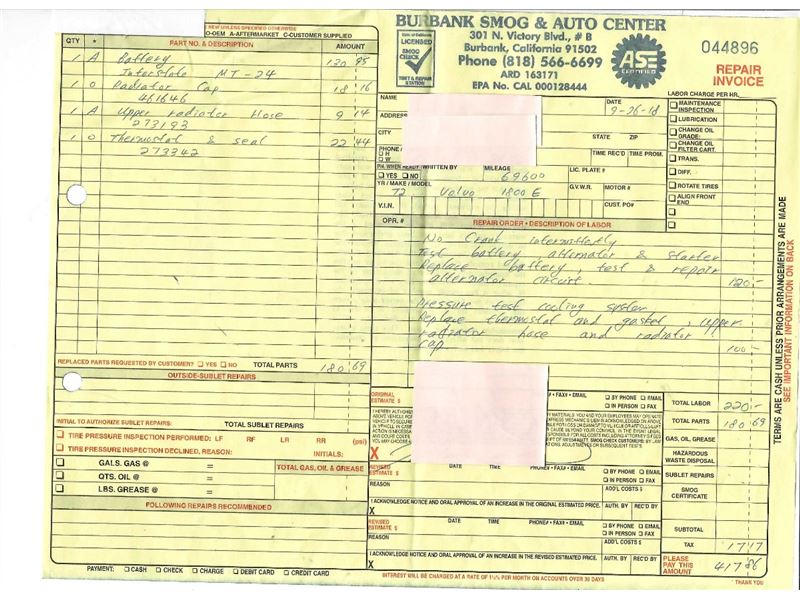 NEW UNLESS SPECIFIED OTHERWISE
O-OEM A-AFTERMARKET C-CUSTOMER SUPPLIED
QTY * PART NO. & DESCRIPTION AMOUNT
1 A Battery 120 95
Interstate MT-24
1 O Radiator Cap 18 16
461646
1 A Upper radiator Hose 9 14
273193
1 O Thermostat & seal 22 44
273342
REPLACED PARTS REQUESTED BY CUSTOMER? YES NO TOTAL PARTS 180 69
OUTSIDE-SUBLET REPAIRS
INITIAL TO AUTHORIZE SUBLET REPAIRS: TOTAL SUBLET REPAIRS
TIRE PRESSURE INSPECTION PERFORMED: LF RF LR RR (psi)
TIRE PRESSURE INSPECTION DECLINED, REASON: INITIALS:
GALS. GAS @ = TOTAL GAS, OIL & GREASE
QTS. OIL @ =
LBS. GREASE @ =
FOLLOWING REPAIRS RECOMMENDED
PAYMENT: CASH CHECK CHARGE DEBIT CARD CREDIT CARD
BURBANK SMOG & AUTO CENTER
301 N. Victory Blvd., # B
Burbank, California 91502
Phone (818) 566-6699
ARD 163171
EPA No. CAL 000128444
LICENSED
SMOG CHECK
TEST & REPAIR STATION
ASE
CERTIFIED
044896
REPAIR INVOICE
NAME DATE 9-26-18
ADDRESS
CITY STATE ZIP
PHONE / H W TIME REC'D TIME PROM.
PH. WHEN READY YES NO WRITTEN BY MILEAGE 69600 LIC. PLATE #
YR / MAKE / MODEL 72 Volvo 1800 E G.V.W.R. MOTOR #
V.I.N. CUST. PO#
OPR. # REPAIR ORDER • DESCRIPTION OF LABOR
No Crank intermittently
Test battery alternator & starter
Replace battery, test & repair
alternator circuit 120 -
Pressure test cooling system
Replace thermostat and gasket, upper
radiator hose and radiator
cap 100 -
LABOR CHARGE PER HR.
MAINTENANCE INSPECTION
LUBRICATION
CHANGE OIL GRADE:
CHANGE OIL FILTER CART.
TRANS.
DIFF.
ROTATE TIRES
ALIGN FRONT END
TERMS ARE CASH UNLESS PRIOR ARRANGEMENTS ARE MADE
SEE IMPORTANT INFORMATION ON BACK
ORIGINAL ESTIMATE $ # • FAX# • EMAIL BY PHONE EMAIL IN PERSON FAX
X
REVISED ESTIMATE $ DATE TIME PHONE# • FAX# • EMAIL BY PHONE EMAIL IN PERSON FAX
REASON ADD'L COSTS $
I ACKNOWLEDGE NOTICE AND ORAL APPROVAL OF AN INCREASE IN THE ORIGINAL ESTIMATED PRICE. AUTH. BY REC'D BY
X
REVISED ESTIMATE $ DATE TIME PHONE# • FAX# • EMAIL BY PHONE EMAIL IN PERSON FAX
REASON ADD'L COSTS $
I ACKNOWLEDGE NOTICE AND ORAL APPROVAL OF AN INCREASE IN THE REVISED ESTIMATED PRICE. AUTH. BY REC'D BY
X
TOTAL LABOR 220 -
TOTAL PARTS 180 69
GAS, OIL, GREASE
HAZARDOUS WASTE DISPOSAL
SUBLET REPAIRS
SMOG CERTIFICATE
SUBTOTAL
TAX 17 17
PLEASE PAY THIS AMOUNT 417 86
INTEREST WILL BE CHARGED AT A RATE OF 1½% PER MONTH ON ACCOUNTS OVER 30 DAYS
THANK YOU